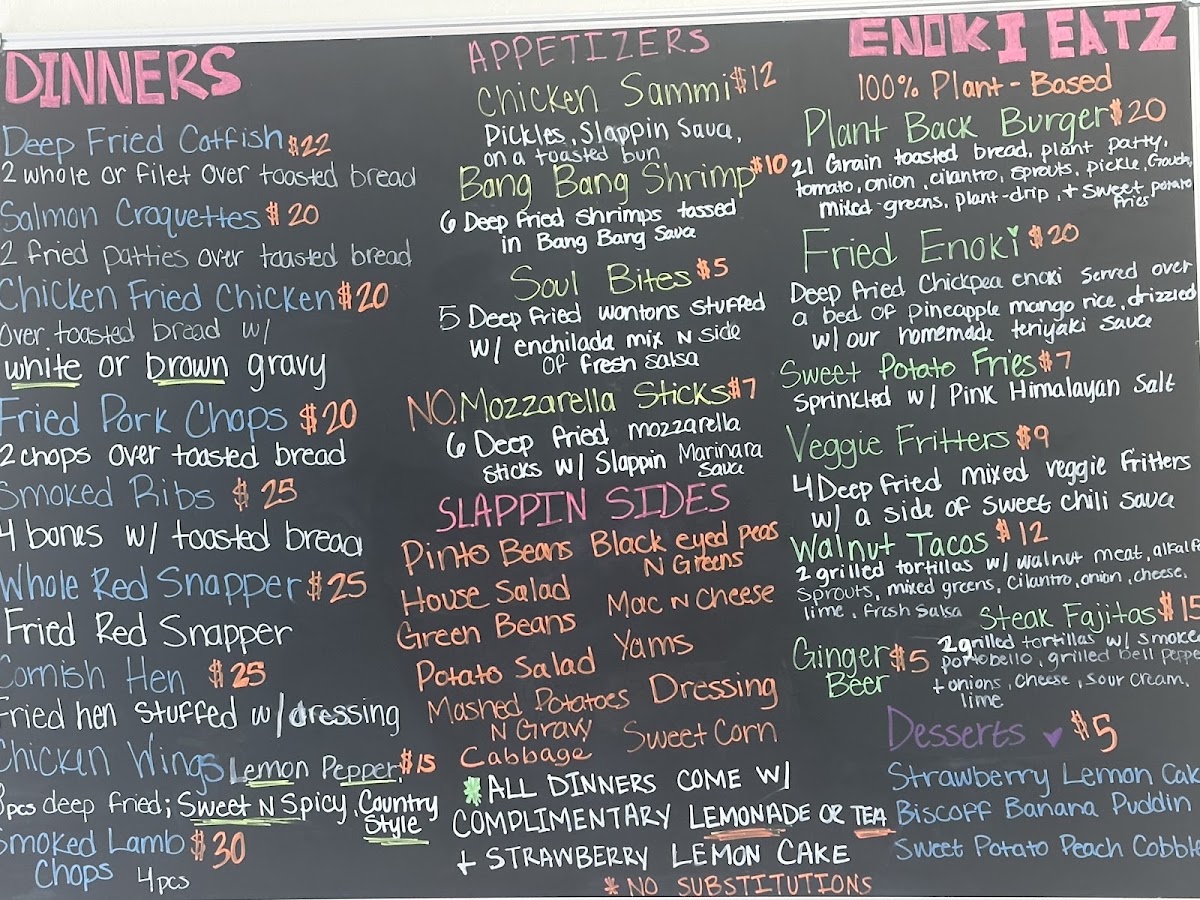 DINNERS
Deep Fried Catfish $22
2 whole or filet over toasted bread
Salmon Croquettes $20
2 fried patties over toasted bread
Chicken Fried Chicken $20
over toasted bread w/
white or brown gravy
Fried Pork Chops $20
2 chops over toasted bread
Smoked Ribs $25
4 bones w/ toasted bread
Whole Red Snapper $25
Fried Red Snapper
Cornish Hen $25
Fried hen stuffed w/dressing
Chicken Wings Lemon Pepper, $15
pcs deep fried; Sweet N Spicy, Country
Style
Smoked Lamb $30
Chops 4pcs
APPETIZERS
Chicken Sammi $12
Pickles, Slappin Sauce,
on a toasted bun
Bang Bang Shrimp $10
6 Deep Fried shrimps tossed
in Bang Bang Sauce
Soul Bites $5
5 Deep Fried wontons stuffed
w/ enchilada mix N side
of fresh salsa
NO. Mozzarella Sticks $7
6 Deep fried mozzarella
sticks w/ Slappin Marinara
Sauce
SLAPPIN SIDES
Pinto Beans Black eyed peas
N Greens
House Salad Mac N Cheese
Green Beans
Potato Salad Yams
Mashed Potatoes Dressing
N Gravy
Cabbage Sweet Corn
*ALL DINNERS COME W/
COMPLIMENTARY LEMONADE OR TEA
+ STRAWBERRY LEMON CAKE
* NO SUBSTITUTIONS
ENOKI EATZ
100% Plant-Based
Plant Back Burger $20
21 Grain toasted bread, plant patty,
tomato, onion, cilantro, sprouts, pickle,
mixed greens, plant-drip, + sweet potato
fries
Fried Enoki $20
Deep fried Chickpea enoki served over
a bed of pineapple mango rice, drizzled
w/ our homemade teriyaki sauce
Sweet Potato Fries $7
sprinkled w/ Pink Himalayan Salt
Veggie Fritters $9
4 Deep Fried mixed veggie fritters
w/ a side of sweet chili sauce
Walnut Tacos $12
2 grilled tortillas w/ walnut meat, alfalfa
sprouts, mixed greens, cilantro, onion, cheese,
lime, fresh salsa
Steak Fajitas $15
2 grilled tortillas w/ smoked
portobello, grilled bell pepper
+ onions, cheese, sour cream,
lime
Ginger $5
Beer
Desserts $5
Strawberry Lemon Cake
Biscoff Banana Puddin
Sweet Potato Peach Cobble